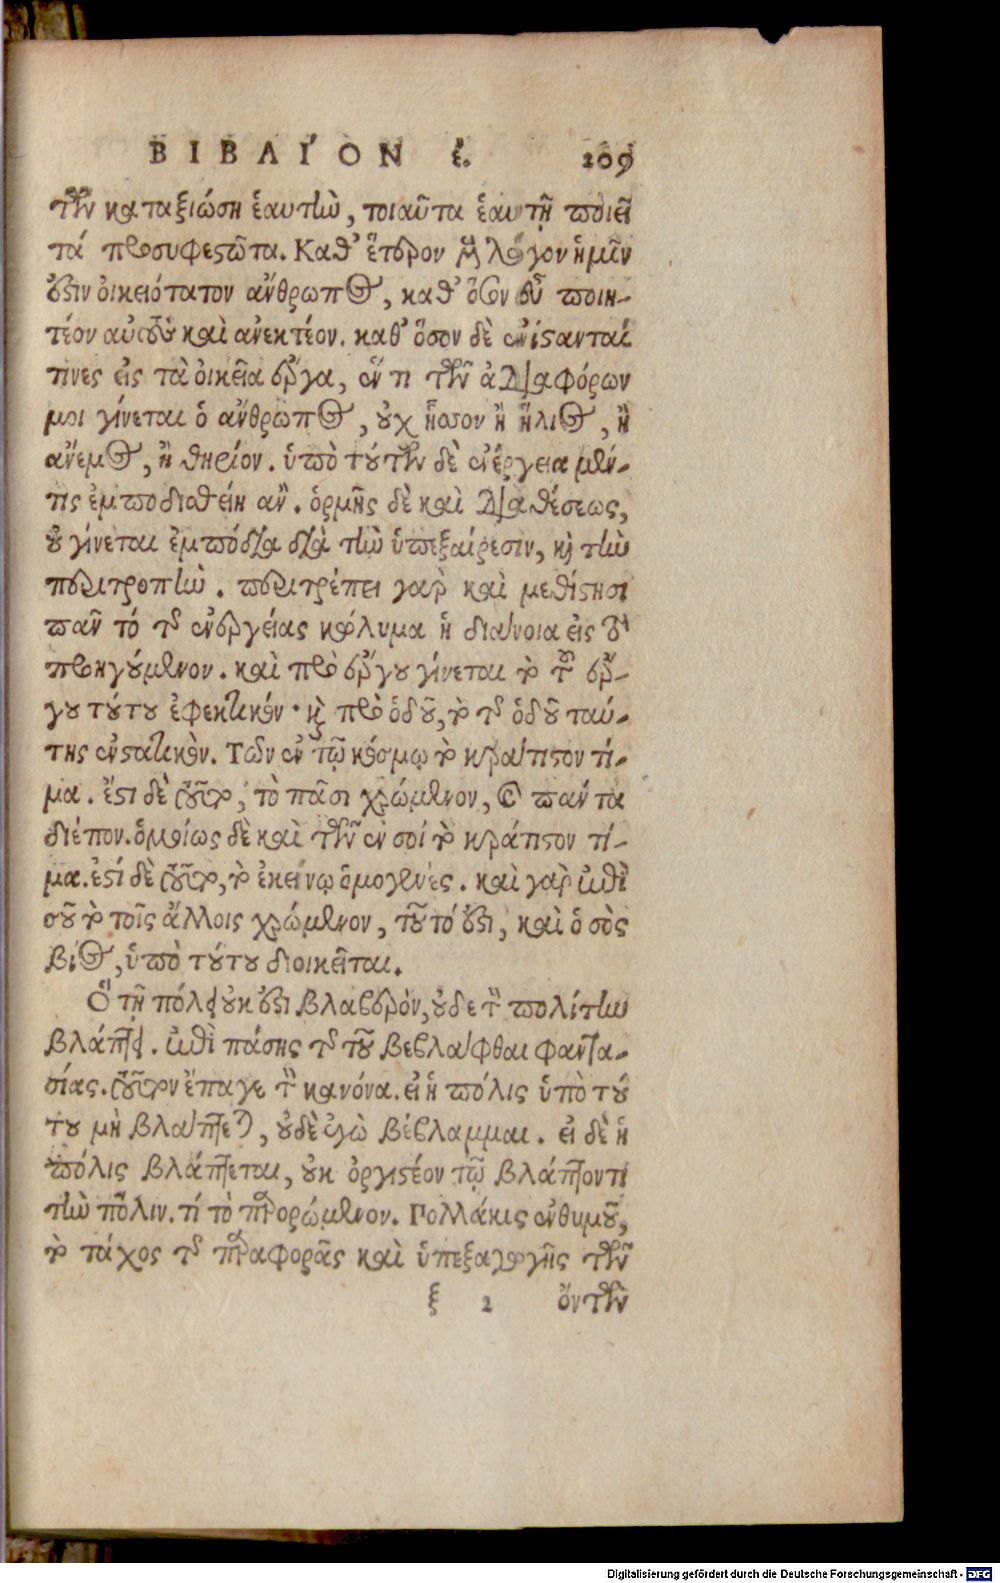 ΒΙΒΛΙ´ΟΝ έ. 209
τῶν καταξιώση ἑαυτὴν, τοιαῦτα ἑαυτῇ ποιεῖ
τά προσυφεστῶτα. Καθ' ἕτερον μὲν λόγον ἡμῖν
ἐστιν οἰκειότατον ἄνθρωπος, καθ' ὅσον εὖ ποιη-
τέον αὐτοὺς καὶ ἀνεκτέον. καθ' ὅσον δὲ ἐνίστανταί
τινες εἰς τὰ οἰκεῖα ἔργα, ἕν τι τῶν ἀδιαφόρων
μοι γίνεται ὁ ἄνθρωπος, οὐχ ἧσσον ἢ ἥλιος, ἢ
ἄνεμος, ἢ θηρίον. ὑπὸ τούτων δὲ ἐνέργεια μέν-
τις ἐμποδισθείη ἂν. ὁρμῆς δὲ καὶ διαθέσεως,
οὐ γίνεται ἐμπόδια διὰ τὴν ὑπεξαίρεσιν, καὶ τὴν
περιτροπὴν. περιτρέπει γὰρ καὶ μεθίστησι
πᾶν τό τῆς ἐνεργείας κώλυμα ἡ διάνοια εἰς τὸ
προηγούμενον. καὶ πρὸ ἔργου γίνεται τὸ τοῦ ἔρ-
γου τούτου ἐφεκτικόν· καὶ πρὸ ὁδοῦ, τὸ τῆς ὁδοῦ ταύ-
της ἐνστατικὸν. Τῶν ἐν τῷ κόσμῳ τὸ κράτιστον τί-
μα. ἔστι δὲ τοῦτο, τὸ πᾶσι χρώμενον, καὶ πάντα
διέπον. ὁμοίως δὲ καὶ τῶν ἐν σοί τὸ κράτιστον τί-
μα. ἐστί δὲ τοῦτο, τὸ ἐκείνῳ ὁμογενές. καὶ γὰρ ἐπὶ
σοῦ τὸ τοῖς ἄλλοις χρώμενον, τοῦτό ἐστι, καὶ ὁ σὸς
βίος, ὑπὸ τούτου διοικεῖται.
Ὃ τῇ πόλει οὐκ ἔστι βλαβερὸν, οὐδε τὸν πολίτην
βλάπτει. ἐπὶ πάσης τῆς τοῦ βεβλάφθαι φαντα-
σίας. τοῦτον ἔπαγε τὸν κανόνα. εἰ ἡ πόλις ὑπὸ τού
του μὴ βλάπτεται, οὐδὲ ἐγὼ βέβλαμμαι. εἰ δὲ ἡ
πόλις βλάπτεται, οὐκ ὀργιστέον τῷ βλάπτοντι
τὴν πόλιν. τί τὸ παρορώμενον. Πολλάκις ἐνθυμοῦ,
τὸ τάχος τῆς παραφορᾶς καὶ ὑπεξαγωγῆς τῶν
ξ 2 ὄντων
Digitalisierung gefördert durch die Deutsche Forschungsgemeinschaft - DFG